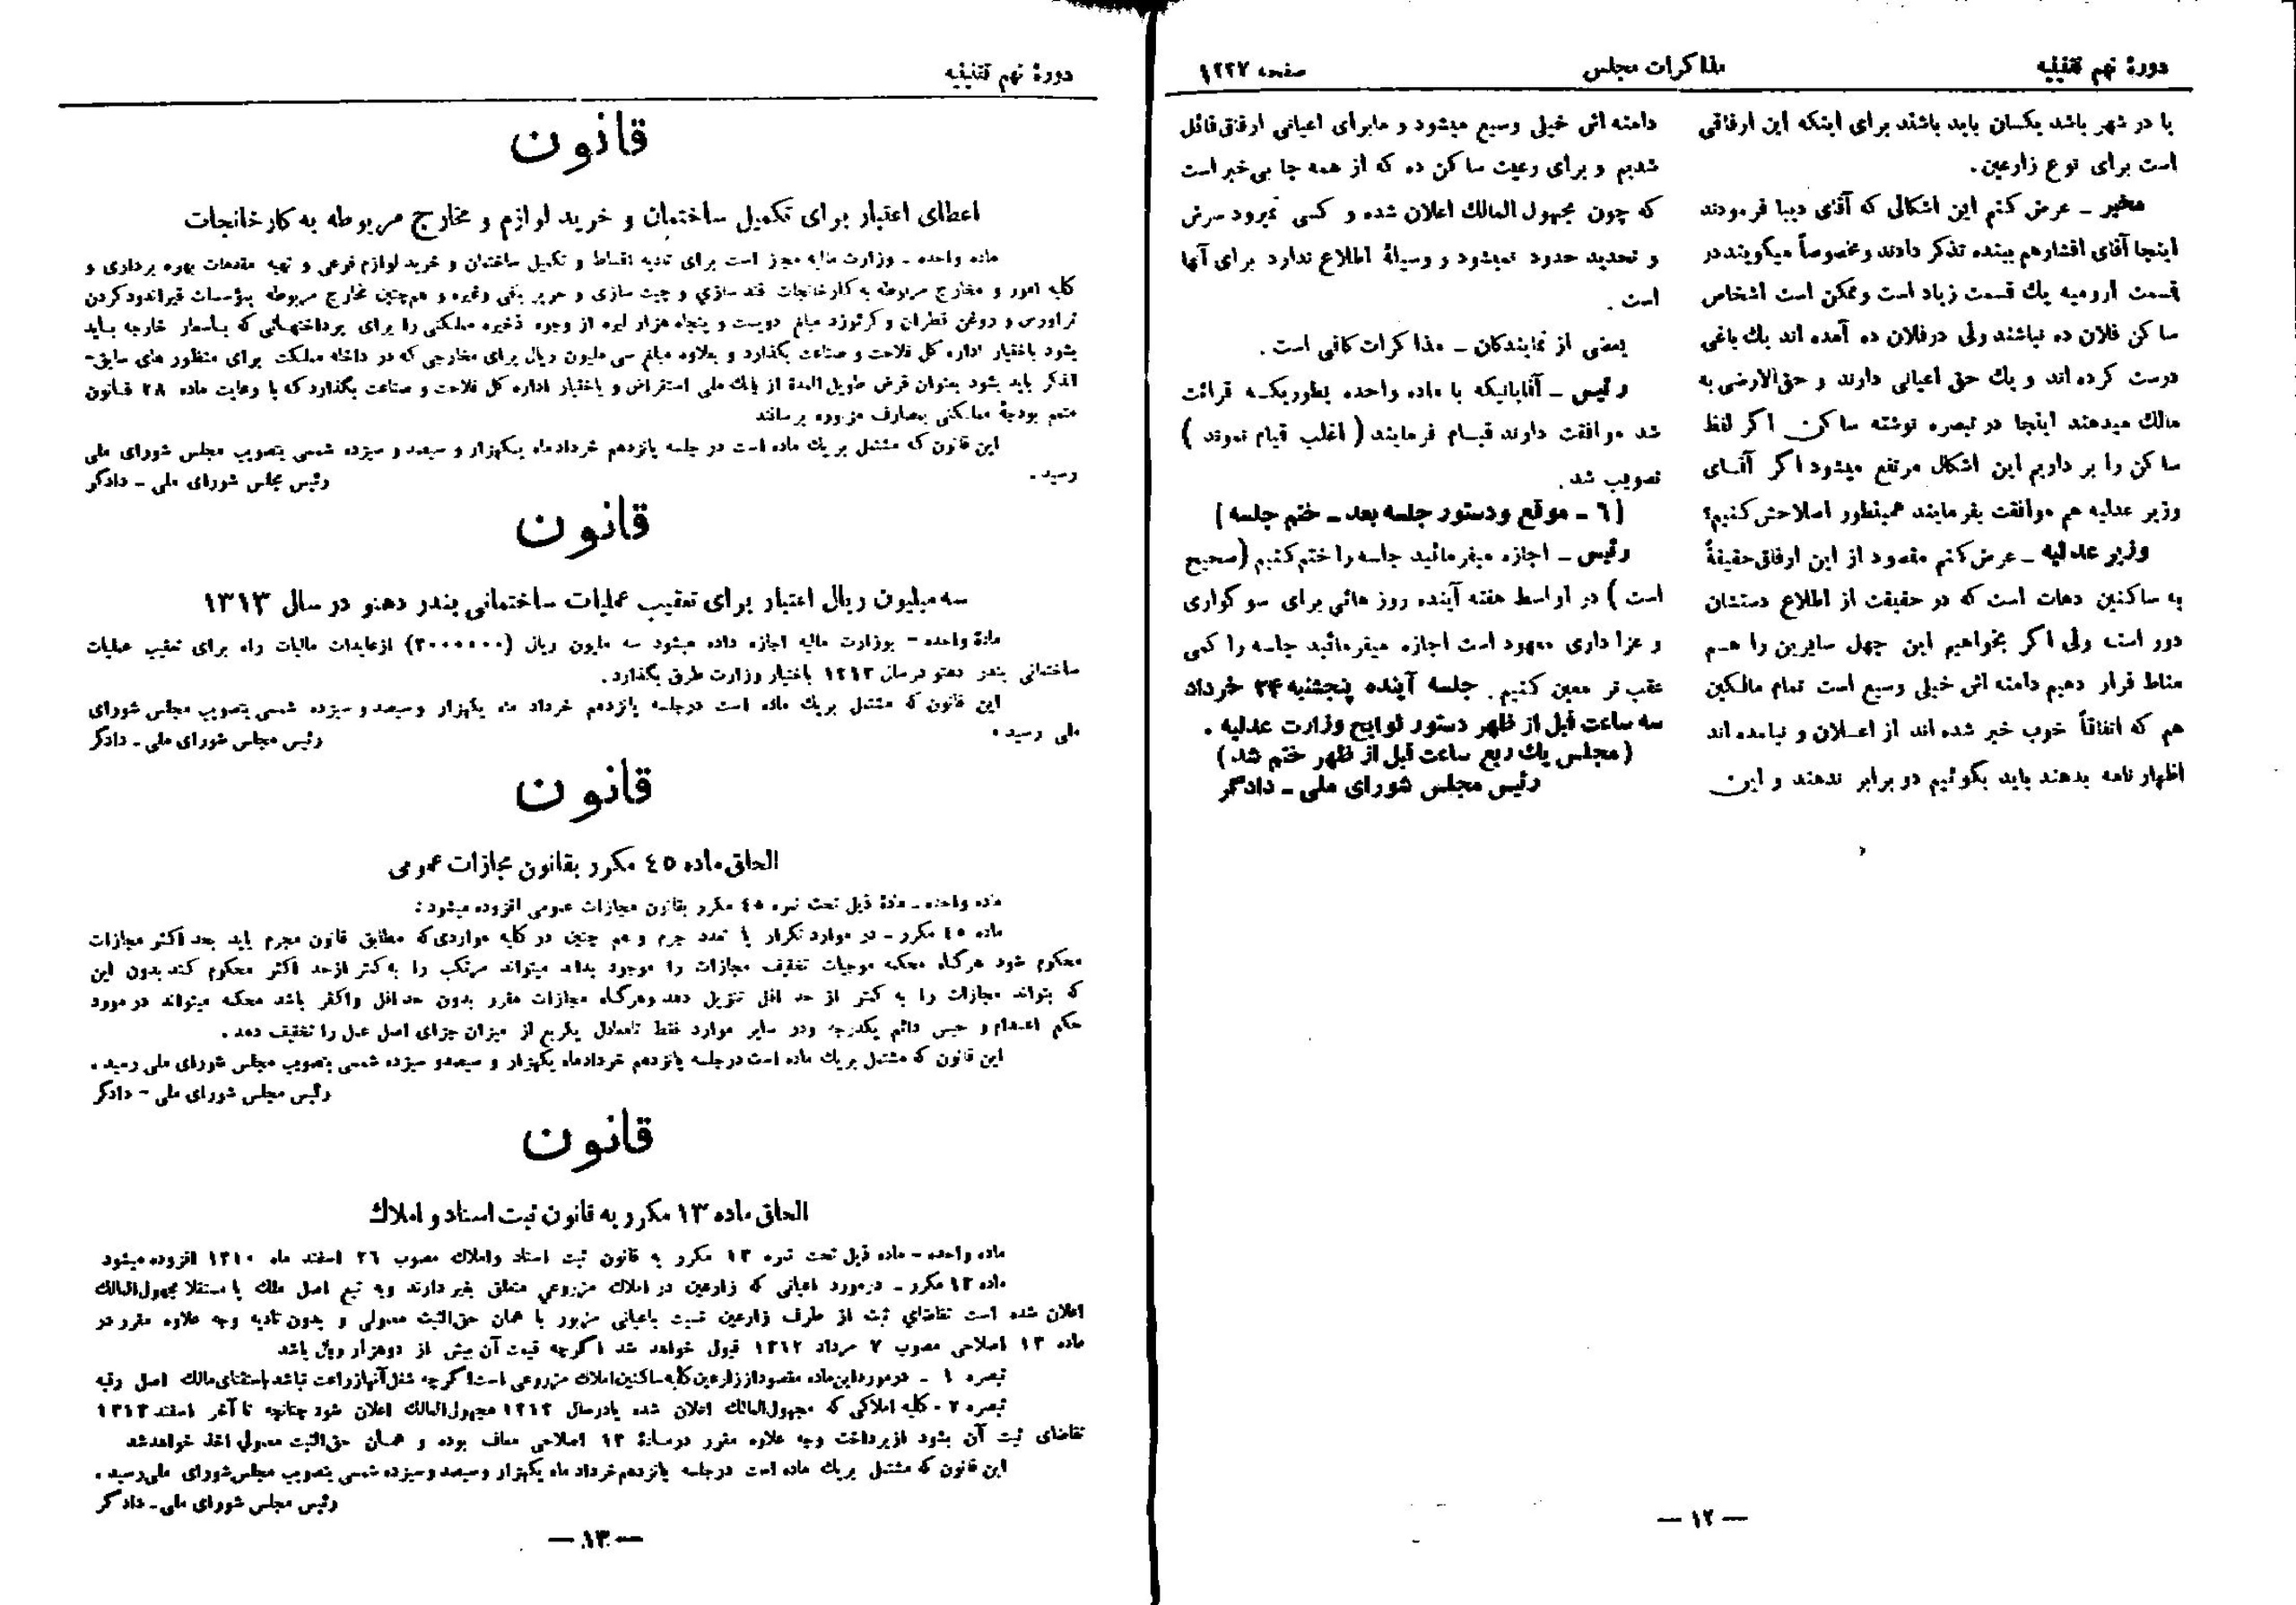 دورهٔ نهم تقنینیه
مذاکرات مجلس
صفحه ۱۲۲۷
یا در شهر باشد یکسان باید باشند برای اینکه این ارفاقی
است برای نوع زارعین .
مخبر ــ عرض کنم این اشکالی که آقای دیبا فرمودند
اینجا آقای افشارهم ببنده تذکر دادند و مخصوصاً میگویند در
قسمت ارومیه یك قسمت زیاد است وممکن است اشخاص
ساکن فلان ده نباشند ولی درفلان ده آمده اند یك باغی
درست کرده اند و یك حق اعیانی دارند و حق‌الارضی به
مالك میدهند اینجا در تبصره نوشته ساکن اگر لفظ
ساکن را بر داریم این اشکال مرتفع میشود اگر آقـای
وزیر عدلیه هم موافقت بفرمایند همینطور اصلاحش کنیم؟
وزیر عدلیه ــ عرض کنم مقصود از این ارفاق حقیقةً
به ساکنین دهات است که در حقیقت از اطلاع دستشان
دور است ولی اگر بخواهیم این جهل سایرین را هـم
مناط قرار دهیم دامنه اش خیلی وسیع است تمام مالکین
هم که اتفاقاً خوب خبر شده اند از اعـلان و نیامده اند
اظهار نامه بدهند باید بگوئیم دو برابر ندهند و این
دامنه اش خیلی وسیع میشود و مابرای اعیانی ارفاق‌قائل
شدیم و برای رعیت ساکن ده که از همه جا بی‌خبر است
که چون مجهول المالك اعلان شده و کسی نمیرود سرش
و تحدید حدود نمیشود و وسیلهٔ اطلاع ندارد برای آنها
است .
بعضی از نمایندکان ــ مذاکرات کافی است .
رئیس ــ آقایانیکه با ماده واحده بطوریکـه قرائت
شد موافقت دارند قیـام فرمایند ( اغلب قیام نمودند )
تصویب شد.
( ٦ ــ موقع ودستور جلسه بعد ــ ختم جلسه )
رئیس ــ اجازه میفرمائید جلسه را ختم کنیم (صحیح
است ) در اواسط هفته آینده روز هائی برای سوکواری
و عزاداری معهود است اجازه میفرمائید جلسه را کمی
عقب تر معین کنیم. جلسه آینده پنجشنبه ۲۴ خرداد
سه ساعت قبل از ظهر دستور لوایح وزارت عدلیه .
( مجلس یك ربع ساعت قبل از ظهر ختم شد )
رئیس مجلس شورای ملی ــ دادگر
— ۱۲ —
دورهٔ نهم تقنینیه
قانون
اعطای اعتبار برای تکمیل ساختمان و خرید لوازم و مخارج مربوطه به کارخانجات
ماده واحده ــ وزارت مالیه مجاز است برای تادیه اقساط و تکمیل ساختمان و خرید لوازم فرعی و تهیه مقدمات بهره برداری و
کلیه امور و مخارج مربوطه به کارخانجات قند سازی و چیت سازی و حریر بافی وغیره و هم‌چنین مخارج مربوطه بمؤسسات قیراندود کردن
تراورس و روغن قطران و کرئوزد مبلغ دویست و پنجاه هزار لیره از وجوه ذخیره مملکتی را برای پرداختهـائی که بـاسعار خارجه بـاید
بشود باختیار اداره کل فلاحت و صناعت بگذارد و بعلاوه مبلغ سی ملیون ریال برای مخارجی که در داخله مملکت برای منظور های سابق-
الذکر باید بشود بعنوان قرض طویل المدة از بانك ملی استقراض و باختیار اداره کل فلاحت و صناعت بگذارد که با رعایت ماده ۲۸ قـانون
متمم بودجهٔ مملکتی بمصارف مزبوره برسانند
این قانون که مشتمل بر یك ماده است در جلسه پانزدهم خردادماه یـکهزار و سیصد و سیزده شمسی بتصویب مجلس شورای ملی
رسید .
رئیس مجلس شورای ملی ــ دادگر
قانون
سه میلیون ریال اعتبار برای تعقیب عملیات ساختمانی بندر دهنو در سال ۱۳۱۳
مادهٔ واحده - بوزارت مالیه اجازه داده میشود سه ملیون ریال (۳۰۰۰۰۰۰) ازعایدات مالیات راه برای تعقیب عملیات
ساختمانی بندر دهنو درسال ۱۳۱۳ باختیار وزارت طرق بگذارد.
این قانون که مشتمل بر یك ماده است درجلسه پانزدهم خرداد ماه یکهزار و سیصد و سیزده شمسی بتصویب مجلس شورای
ملی رسید .
رئیس مجلس شورای ملی ــ دادگر
قانون
الحاق ماده ٤٥ مکرر بقانون مجازات عمومی
ماده واحده ــ مادهٔ ذیل تحت نمره ٤٥ مکرر بقانون مجازات عمومی افزوده میشود :
ماده ٤٥ مکرر ــ در موارد تکرار یا تعدد جرم و هم چنین در کلیه مواردی‌که مطابق قانون مجرم باید بحد اکثر مجازات
محکوم شود هرگاه محکمه موجبات تخفیف مجازات را موجود بداند میتواند مرتکب را به کمتر ازحد اکثر محکوم کند بدون این
که بتواند مجازات را به کمتر از حد اقل تنزیل دهد وهرگاه مجازات مقرر بدون حداقل واکثر باشد محکمه میتواند در مورد
حکم اعدام و حبس دائم یکدرجه ودر سایر موارد فقط تامعادل یکربع از میزان جزای اصل عمل را تخفیف دهد .
این قانون که مشتمل بر یك ماده است درجلسه پانزدهم خردادماه یکهزار و سیصدو سیزده شمسی بتصویب مجلس شورای ملی رسید .
رئیس مجلس شورای ملی - دادگر
قانون
الحاق ماده ۱۳ مکرر به قانون ثبت اسناد و املاك
ماده واحده - ماده ذیل تحت نمره ۱۳ مکرر به قانون ثبت اسناد واملاك مصوب ۲٦ اسفند ماه ۱۳۱۰ افزوده میشود
ماده ۱۳ مکرر ــ درمورد اعیانی که زارعین در املاك مزروعی متعلق بغیر دارند وبه تبع اصل ملك یا مستقلا مجهول‌المالك
اعلان شده است تقاضای ثبت از طرف زارعین نسبت باعیانی مزبور با همان حق‌الثبت معمولی و بدون تادیه وجه علاوه مقرر در
ماده ۱۳ اصلاحی مصوب ۷ مرداد ۱۳۱۲ قبول خواهد شد اگرچه قیمت آن بیش از دوهزار ریال باشد
تبصره ۱ ــ درمورداین‌ماده مقصوداززارعین‌کلیه‌ساکنین‌املاك مزروعی است‌اگرچه شغل آنهازراعت نباشد باستثنای‌مالك اصل رقبه
تبصره ۲ - کلیه املاکی که مجهول‌المالك اعلان شده یادرسال ۱۳۱۳ مجهول‌المالك اعلان شود چنانچه تا آخر اسفند ۱۳۱۳
تقاضای ثبت آن بشود ازپرداخت وجه علاوه مقرر درمـادهٔ ۱۳ اصلاحی معاف بوده و همـان حق‌الثبت معمولی اخذ خواهدشد
این قانون که مشتمل بر یك ماده است درجلسه پانزدهم خرداد ماه یکهزار وسیصد وسیزده شمسی بتصویب مجلس‌شورای ملی‌رسید .
رئیس مجلس شورای ملی ــ دادگر
— ۱۳ —